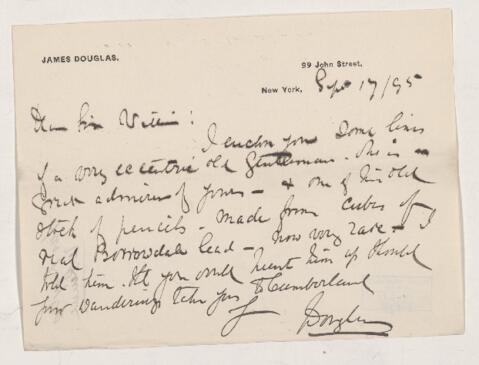 JAMES DOUGLAS.
99 John Street,
New York, Sept 17/95
Dear Sir William:
I enclose you some lines
of a very eccentric old gentleman. Who is a
great admirer of yours — & one of his old
stock of pencils — made from cubes of
real Borrowdale lead — now very rare — I
told him that you would hunt him up should
your wanderings take you to Cumberland
Douglas